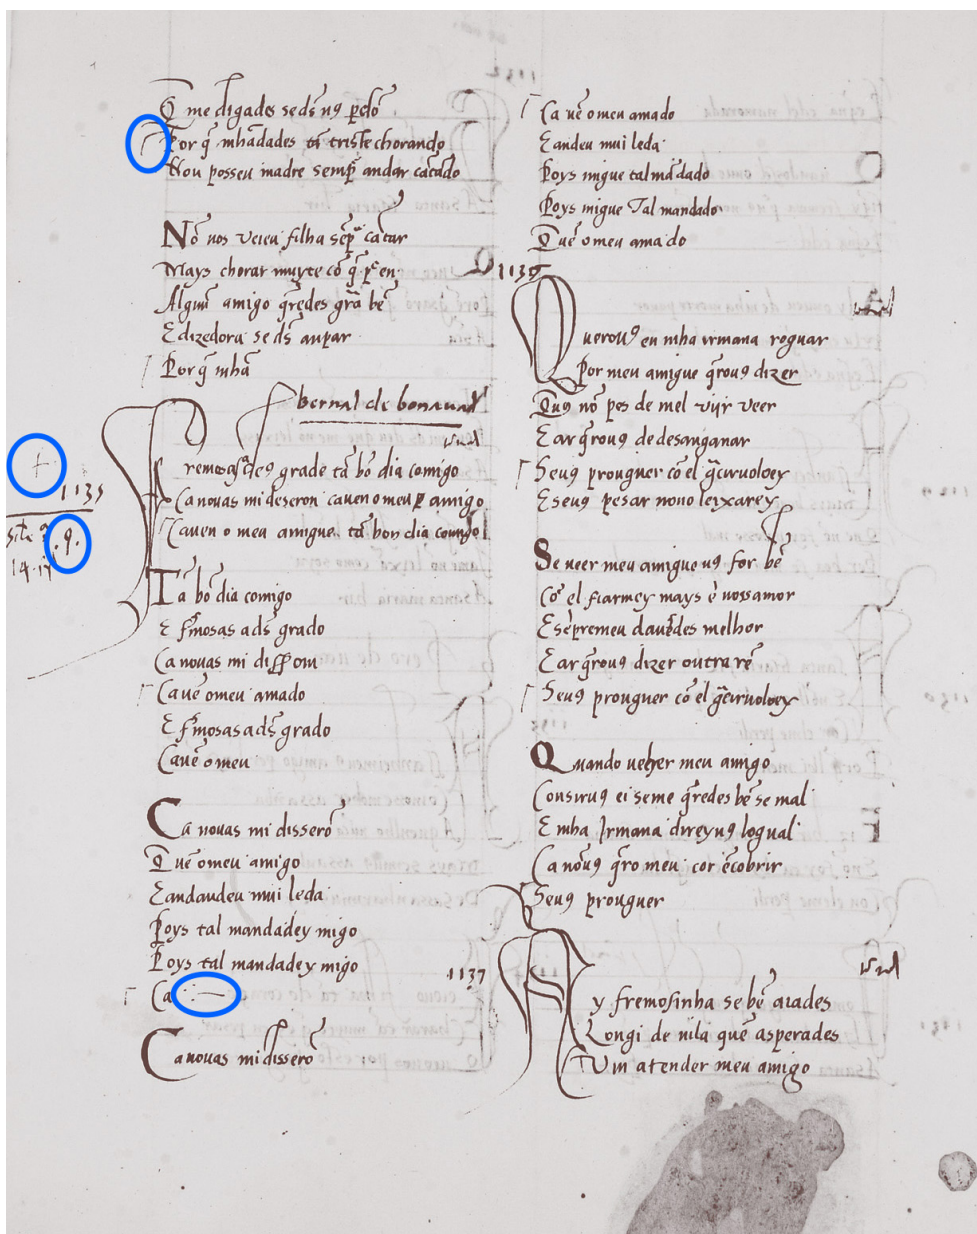 Q̄ me digades se ds̄ uꝯ ꝑdō
Por q̄ mhādades tā triste chorando
Nou posseu madre semꝑ andar cātādo
Nō uos ueieu filha sēp̄ cātar
Mays chorar muyte cō q̄ ꝑ en
Algun amigo q̄redes grā bē
E dizedora se ds̄ anpar
Por q̄ mhā
bernal de bonaual
1135
14.
.9.
remosas a deꝯ grade tā bō dia comigo
Ca nouas mi disseron ca uen o meu amigo
Ca uen o meu amigue tā bon dia comigo
Tā bō dia comigo
E fm̄osas a ds̄ grado
Ca nouas mi dissom
Ca uē o meu amado
E fm̄osas a ds̄ grado
Ca uē o meu
Ca nouas mi disserō
Quē o meu amigo
E andandeu mui leda
Poys tal mandadey migo
Poys tal mandadey migo
Ca
Ca nouas mi disserō
Ca uē o meu amado
E andeu mui leda
Poys migue tal mādado
Poys migue Tal mandado
Quē o meu amado
1136
Querouꝯ eu mha irmana roguar
Por meu amigue q̄rouꝯ dizer
Quꝯ nō pes de mel uijr ueer
E ar q̄rouꝯ de desanganar
Seuꝯ prouguer cō el
E seuꝯ pesar nono leixarey
Se ueer meu amigue uꝯ for bē
Cō el fiarmey mays ē uossamor
E sēpremeu dauedes melhor
E ar q̄rouꝯ dizer outra rē
Seuꝯ prouguer cō el
Quando ueher meu amigo
Cousiruꝯ ei seme q̄redes bē se mal
E mha Irmana direyuꝯ logual
Ca nō uꝯ q̄ro meu cor ēcobrir
Seuꝯ prouguer
1137
Ay fremosinha se bē aiades
Longi de uila quē asperades
Vin atender meu amigo